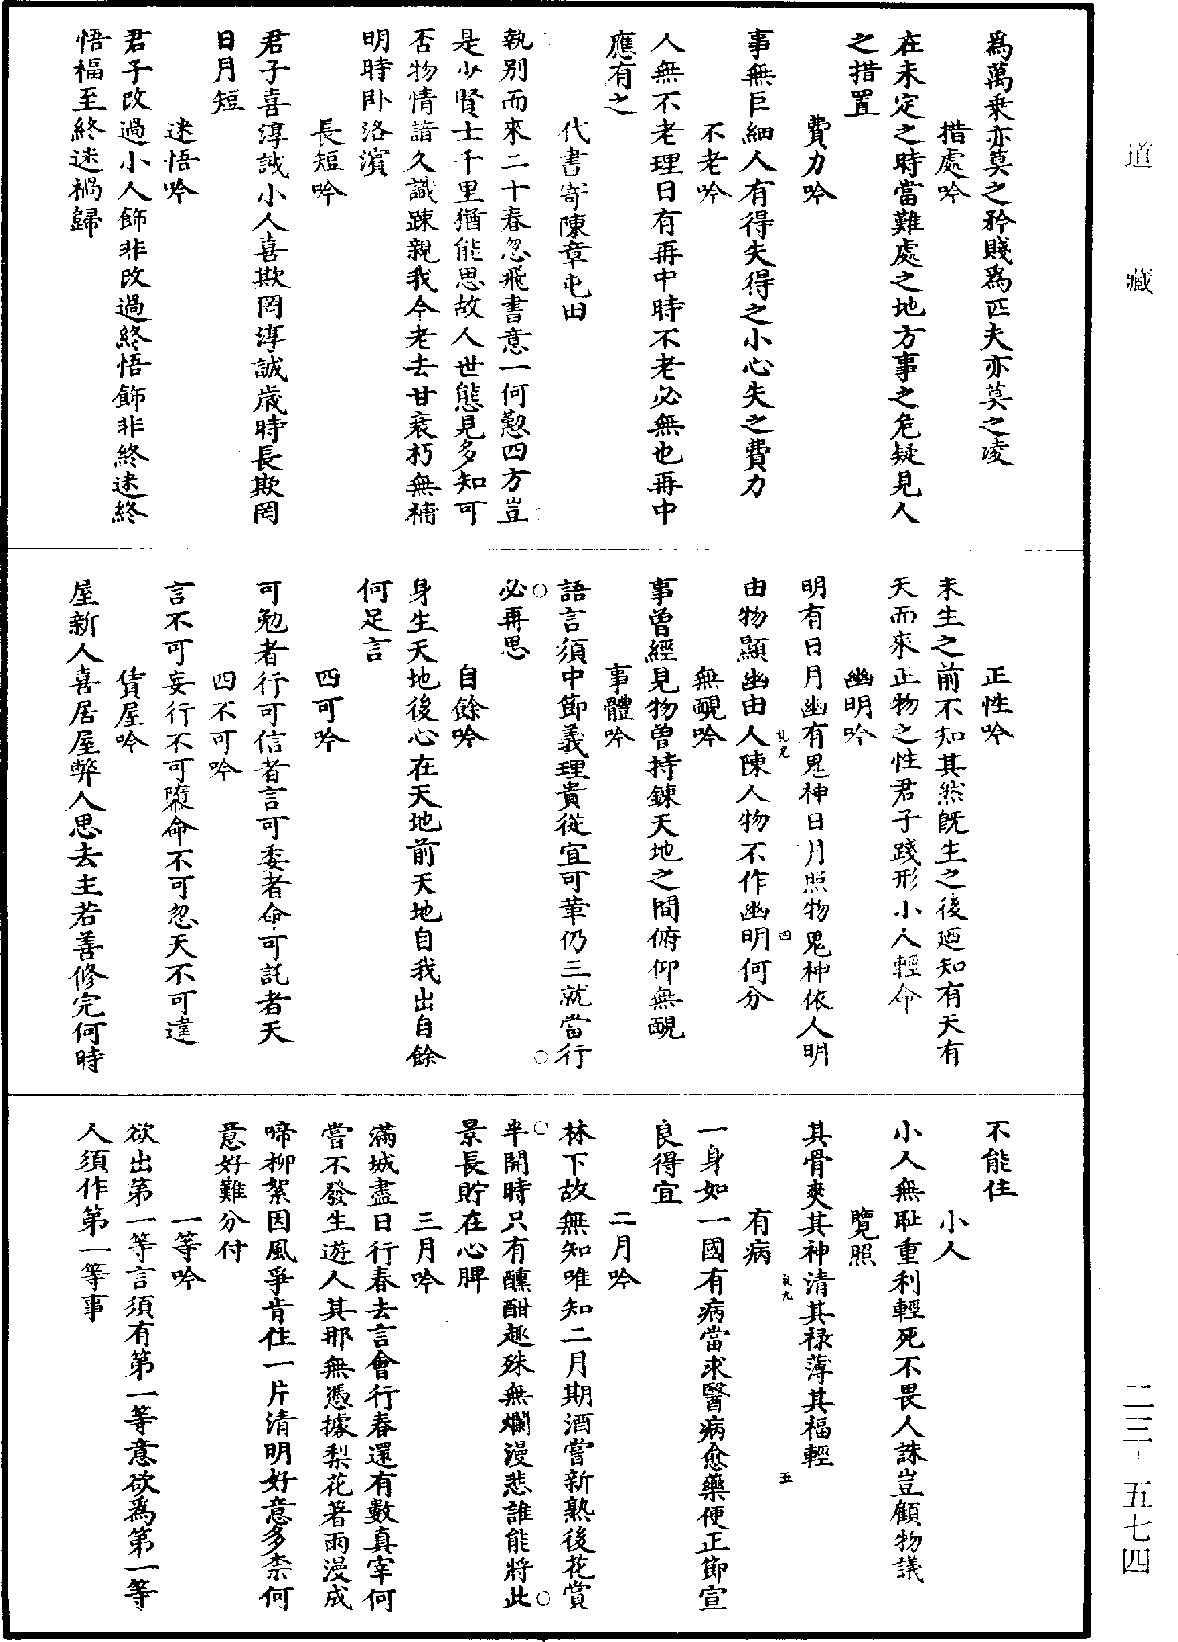 道藏
二三-五七四
爲萬乘亦莫之矜賤爲匹夫亦莫之凌
措處吟
在未定之時當難處之地方事之危疑見人
之措置
費力吟
事無巨細人有得失得之小心失之費力
不老吟
人無不老理日有再中時不老必無也再中
應有之
代書寄陳章屯田
執別而來二十春忽飛書意一何懃四方豈
是少賢士千里猶能思故人世態見多知可
否物情諳久識踈親我今老去甘衰朽無補
明時卧洛濱
長短吟
君子喜淳誠小人喜欺罔淳誠歲時長欺罔
日月短
迷悟吟
君子改過小人飾非改過終悟飾非終迷終
悟福至終迷禍歸
正性吟
未生之前不知其然旣生之後廼知有天有
天而來正物之性君子踐形小人輕命
幽明吟
明有日月幽有鬼神日月照物鬼神依人明
由物顯幽由人陳人物不作幽明何分
四
無靦吟
事曾經見物曾持鍊天地之間俯仰無靦
事體吟
語言須中節義理貴從宜可革仍三就當行
必再思
自餘吟
身生天地後心在天地前天地自我出自餘
何足言
四可吟
可勉者行可信者言可委者命可託者天
四不可吟
言不可妄行不可隳命不可忽天不可違
賃屋吟
屋新人喜居屋弊人思去主若善修完何時
不能住
小人
小人無恥重利輕死不畏人誅豈顧物議
覽照
其骨爽其神清其祿薄其福輕
五
有病
一身如一國有病當求醫病愈藥便正節宣
良得宜
二月吟
林下故無知唯知二月期酒嘗新熟後花賞
半開時只有醺酣趣殊無爛漫悲誰能將此
景長貯在心脾
三月吟
滿城盡日行春去言會行春還有數真宰何
嘗不發生遊人其那無憑據梨花著雨漫成
啼柳絮因風爭肯住一片清明好意多柰何
意好難分付
一等吟
欲出第一等言須有第一等意欲爲第一等
人須作第一等事